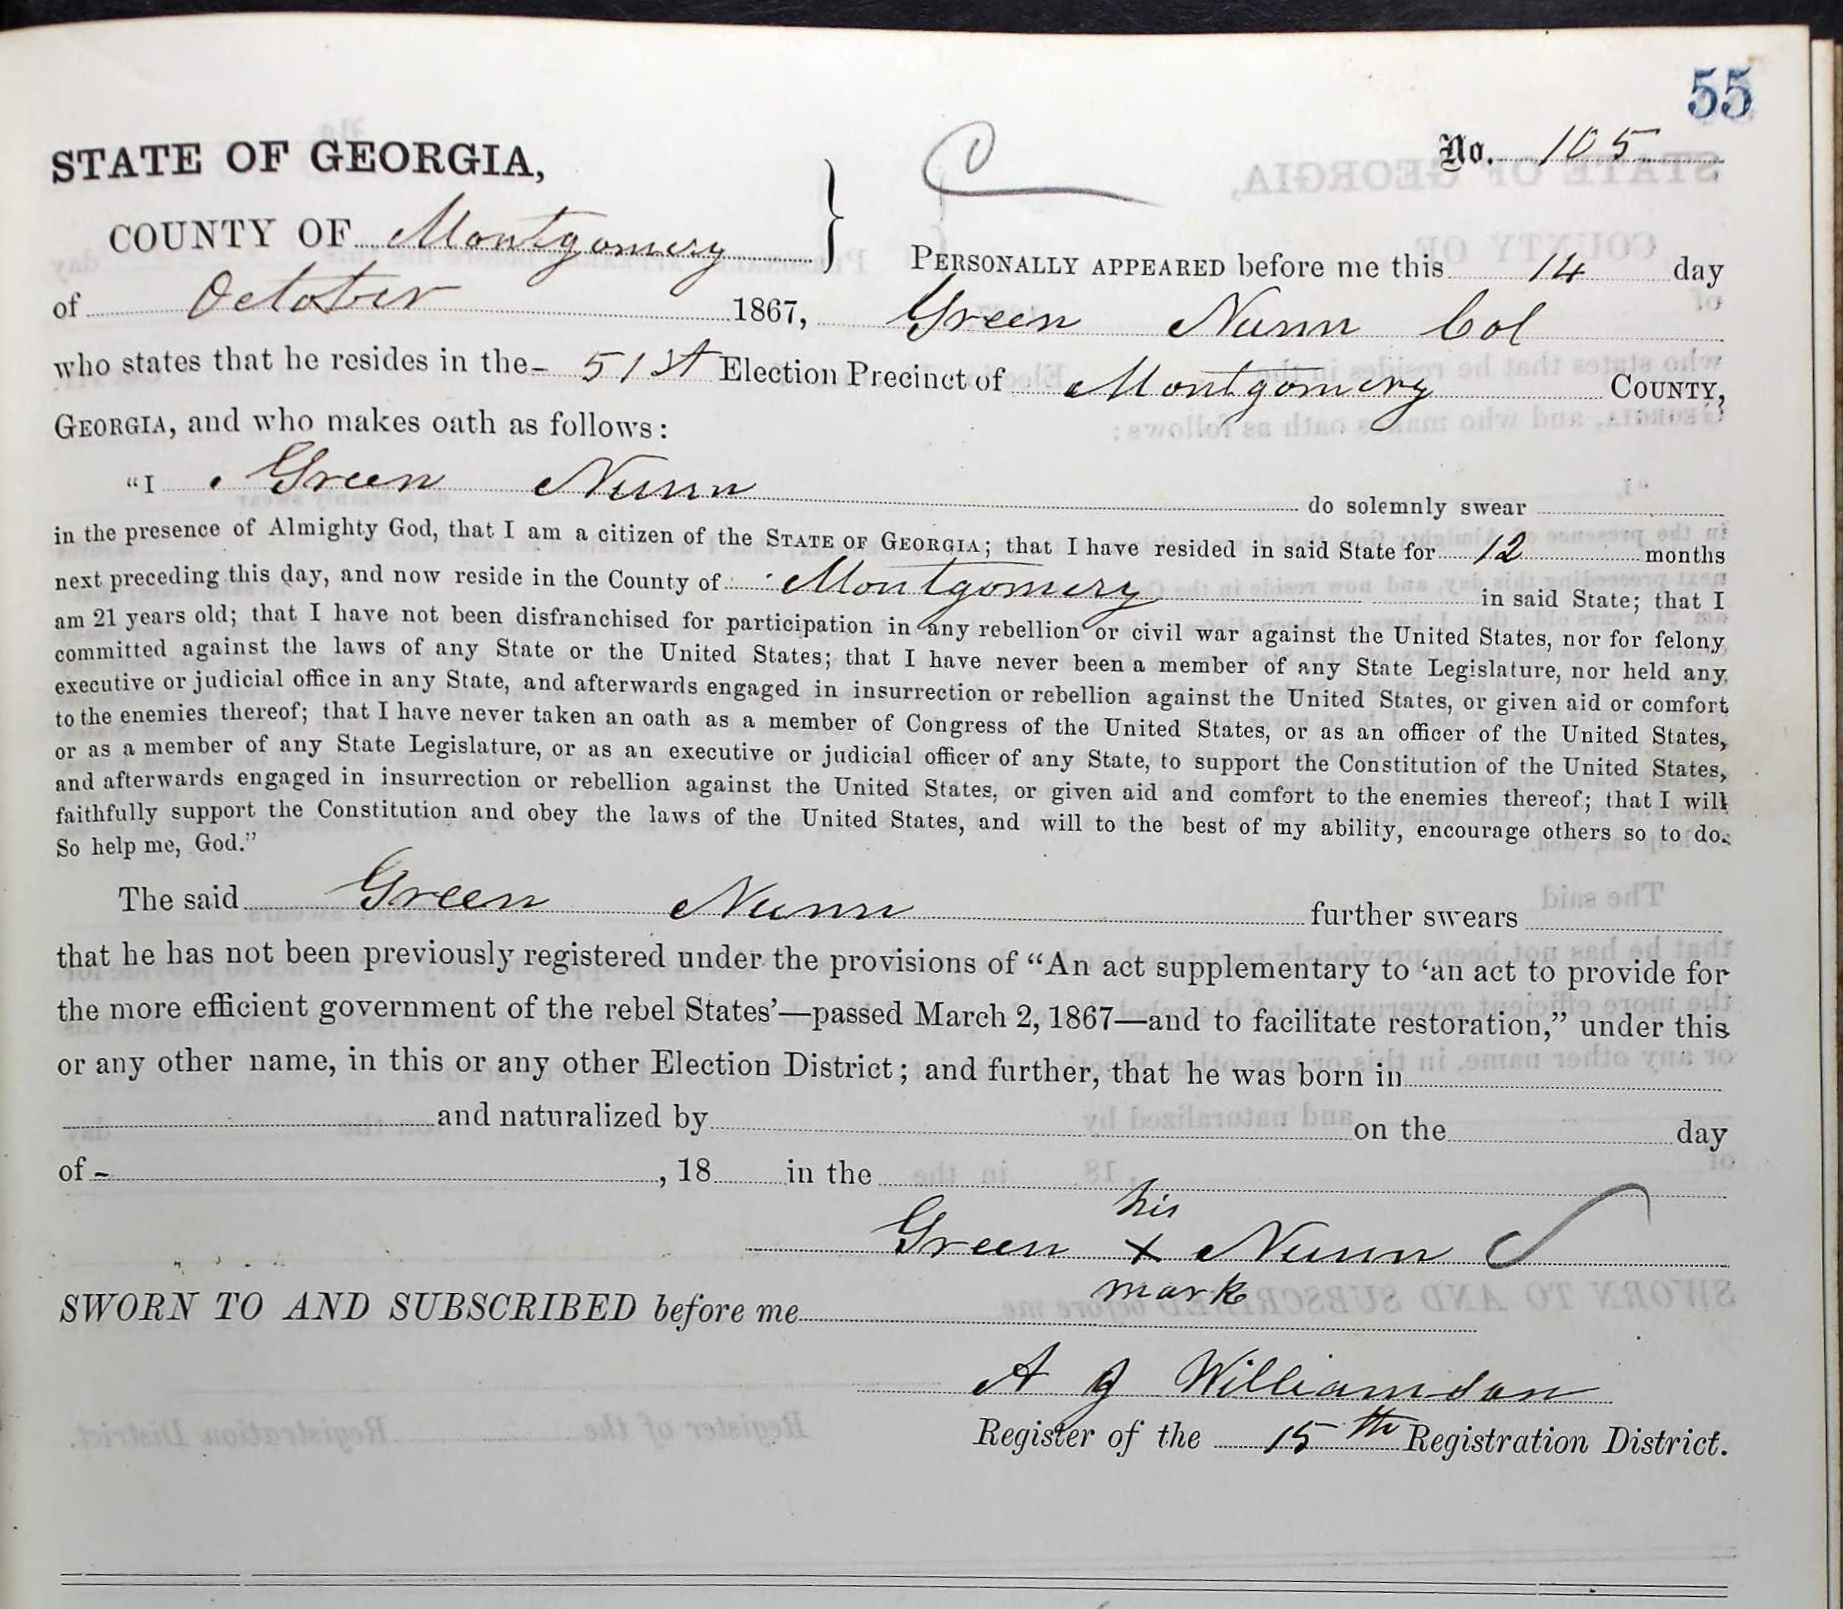 55
STATE OF GEORGIA,
No. 105
COUNTY OF Montgomery
PERSONALLY APPEARED before me this 14 day
of October 1867, Green Nunn Col
who states that he resides in the 51st Election Precinct of Montgomery COUNTY,
GEORGIA, and who makes oath as follows:
"I Green Nunn do solemnly swear
in the presence of Almighty God, that I am a citizen of the STATE OF GEORGIA; that I have resided in said State for 12 months
next preceding this day, and now reside in the County of Montgomery in said State; that I
am 21 years old; that I have not been disfranchised for participation in any rebellion or civil war against the United States, nor for felony
committed against the laws of any State or the United States; that I have never been a member of any State Legislature, nor held any
executive or judicial office in any State, and afterwards engaged in insurrection or rebellion against the United States, or given aid or comfort
to the enemies thereof; that I have never taken an oath as a member of Congress of the United States, or as an officer of the United States,
or as a member of any State Legislature, or as an executive or judicial officer of any State, to support the Constitution of the United States,
and afterwards engaged in insurrection or rebellion against the United States, or given aid and comfort to the enemies thereof; that I will
faithfully support the Constitution and obey the laws of the United States, and will to the best of my ability, encourage others so to do.
So help me, God."
The said Green Nunn further swears
that he has not been previously registered under the provisions of "An act supplementary to 'an act to provide for
the more efficient government of the rebel States'—passed March 2, 1867—and to facilitate restoration," under this
or any other name, in this or any other Election District; and further, that he was born in
and naturalized by on the day
of , 18 in the
his
Green X Nunn
mark
SWORN TO AND SUBSCRIBED before me
A J Williamson
Register of the 15th Registration District.